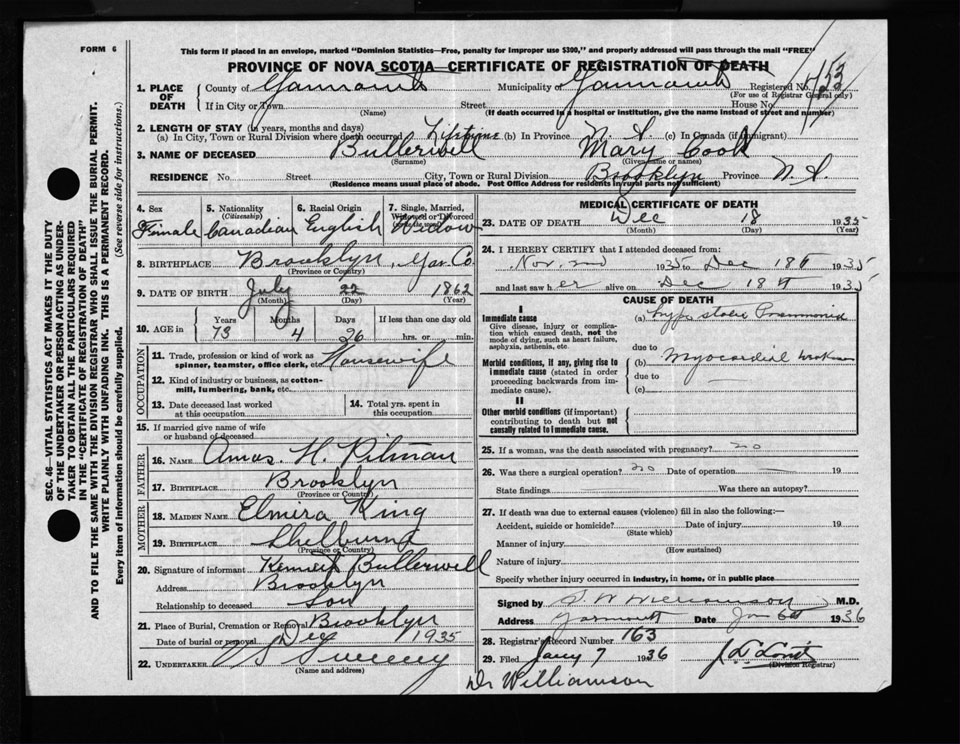 FORM 6
This form if placed in an envelope, marked "Dominion Statistics—Free, penalty for improper use $300," and properly addressed will pass through the mail "FREE"
PROVINCE OF NOVA SCOTIA—CERTIFICATE OF REGISTRATION OF DEATH
1. PLACE OF DEATH County of Yarmouth Municipality of Yarmouth Registered No.
(For use of Registrar General only)
If in City or Town Street House No.
(Name) (If death occurred in a hospital or institution, give the name instead of street and number)
2. LENGTH OF STAY (in years, months and days)
(a) In City, Town or Rural Division where death occurred Lifetime (b) In Province N. S. (c) In Canada (if immigrant)
3. NAME OF DECEASED Butlerwell Mary Cook
(Surname) (Given name or names)
RESIDENCE No. Street City, Town or Rural Division Brooklyn Province N. S.
(Residence means usual place of abode. Post Office Address for residents in rural parts not sufficient)
4. Sex Female
5. Nationality (Citizenship) Canadian
6. Racial Origin English
7. Single, Married, Widowed or Divorced Widow
8. BIRTHPLACE Brooklyn, Yar. Co.
(Province or Country)
9. DATE OF BIRTH July 22 1862
(Month) (Day) (Year)
10. AGE in Years Months Days If less than one day old
73 4 26 hrs. or min.
OCCUPATION
11. Trade, profession or kind of work as spinner, teamster, office clerk, etc. Housewife
12. Kind of industry or business, as cotton-mill, lumbering, bank, etc.
13. Date deceased last worked at this occupation
14. Total yrs. spent in this occupation
15. If married give name of wife or husband of deceased
FATHER
16. NAME Amos H. Pitman
17. BIRTHPLACE Brooklyn
(Province or Country)
MOTHER
18. MAIDEN NAME Elmira King
19. BIRTHPLACE Shelburne
(Province or Country)
20. Signature of informant Kenneth Butlerwell
Address Brooklyn
Relationship to deceased Son
21. Place of Burial, Cremation or Removal Brooklyn
Date of burial or removal Dec 1935
22. UNDERTAKER Sweeny
(Name and address)
MEDICAL CERTIFICATE OF DEATH
23. DATE OF DEATH Dec 18 1935
(Month) (Day) (Year)
24. I HEREBY CERTIFY that I attended deceased from:
Nov. 2nd 1935 to Dec 18th 1935
and last saw her alive on Dec 18th 1935
CAUSE OF DEATH
I
Immediate cause (a) Hypostatic Pneumonia
Give disease, injury or complication which caused death, not the mode of dying, such as heart failure, asphyxia, asthenia, etc.
due to
Morbid conditions, if any, giving rise to immediate cause (stated in order proceeding backwards from immediate cause).
(b) Myocardial weakness
due to
(c)
II
Other morbid conditions (if important) contributing to death but not causally related to immediate cause.
25. If a woman, was the death associated with pregnancy? no
26. Was there a surgical operation? no Date of operation 19
State findings Was there an autopsy?
27. If death was due to external causes (violence) fill in also the following:—
Accident, suicide or homicide? Date of injury 19
(State which)
Manner of injury
(How sustained)
Nature of injury
Specify whether injury occurred in industry, in home, or in public place
Signed by S. W. Williamson M.D.
Address Yarmouth Date Jan 6th 1936
28. Registrar's Record Number 163
29. Filed Jany 7 1936
(Division Registrar)
Dr Williamson
SEC. 46—VITAL STATISTICS ACT MAKES IT THE DUTY
OF THE UNDERTAKER OR PERSON ACTING AS UNDER-
TAKER TO OBTAIN ALL THE PARTICULARS REQUIRED
IN THE "CERTIFICATE OF REGISTRATION OF DEATH"
AND TO FILE THE SAME WITH THE DIVISION REGISTRAR WHO SHALL ISSUE THE BURIAL PERMIT.
WRITE PLAINLY WITH UNFADING INK. THIS IS A PERMANENT RECORD.
Every item of information should be carefully supplied. (See reverse side for instructions.)